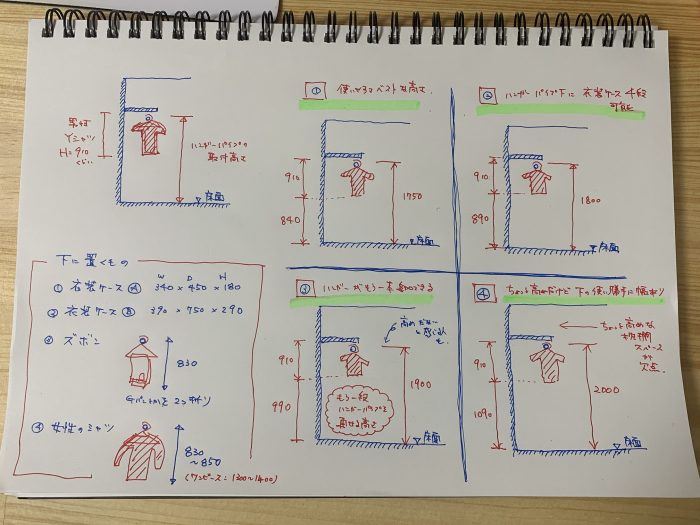 男性
Yシャツ
H=910
くらい
ハンガーパイプの
取付高さ
床面
下に置くもの
W D H
① 衣装ケースⒶ 340×450×180
② 衣装ケースⒷ 390×750×290
③ ズボン
830
Gパンとかを2つ折り
④ 女性のシャツ
830
~850
(ワンピース:1300~1400)
① 使いやすさベストな高さ
910
840
1750
床面
② ハンガーパイプ下に衣装ケース4段
可能
910
890
1800
床面
③ ハンガーがもう一本追加できる
高めだな
と感じる人
も
910
990
1900
もう一段
ハンガーパイプを
床面
④ ちょっと高めだけど下の使い勝手に幅あり
ちょっと高めな
枕棚
スペース
が
欠点
910
1090
2000
床面